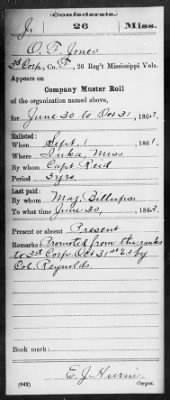 Confederate.
J. 26 Miss.
O. F. Jones
3d Corp, Co. F, 26 Reg't Mississippi Vols.
Appears on
Company Muster Roll
of the organization named above,
for June 30 to Oct 31, 1863.
Enlisted:
When Sept. 1, 1861.
Where Iuka, Miss
By whom Capt Reid
Period 3 yrs.
Last paid:
By whom Maj. Billups
To what time June 30, 1863.
Present or absent Present
Remarks: Promoted from the ranks
to 3d Corp. Oct 31st 63 by
Col. Reynolds.
Book mark:
E. J.
(642) Copyist.